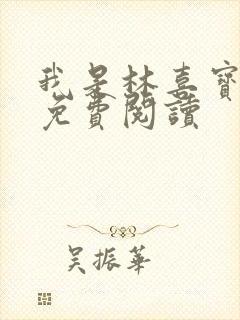 我是林喜寶
免費閱讀
吴振華